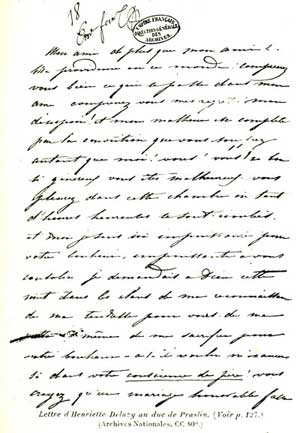 18
EMPIRE FRANÇAIS
DIRECTION GÉNÉRALE
DES
ARCHIVES
Mon ami et plus que mon ami !
providence en ce monde ! comprenez
vous bien ce qui se passe dans mon
ame comprenez vous mes regrets mon
désespoir ! et mon malheur se complete
par la conviction que vous souffrez
autant que moi ! vous ! vous ! si bon
si généreux vous êtes malheureux vous
pleurez dans cette chambre où tant
d'heures heureuses se sont
et Dieu je suis impuissante pour
votre bonheur, impuissante a vous
consoler je demandais a Dieu cette
nuit dans les de ma reconnaissance
de ma tendresse pour vous de me
de me sacrifier pour
votre bonheur
si dans votre conscience de père ! vous
croyez qu'un mariage honorable fasse
Lettre d'Henriette Deluzy au duc de Praslin. (Voir p. 127.)
(Archives Nationales, CC 809.)